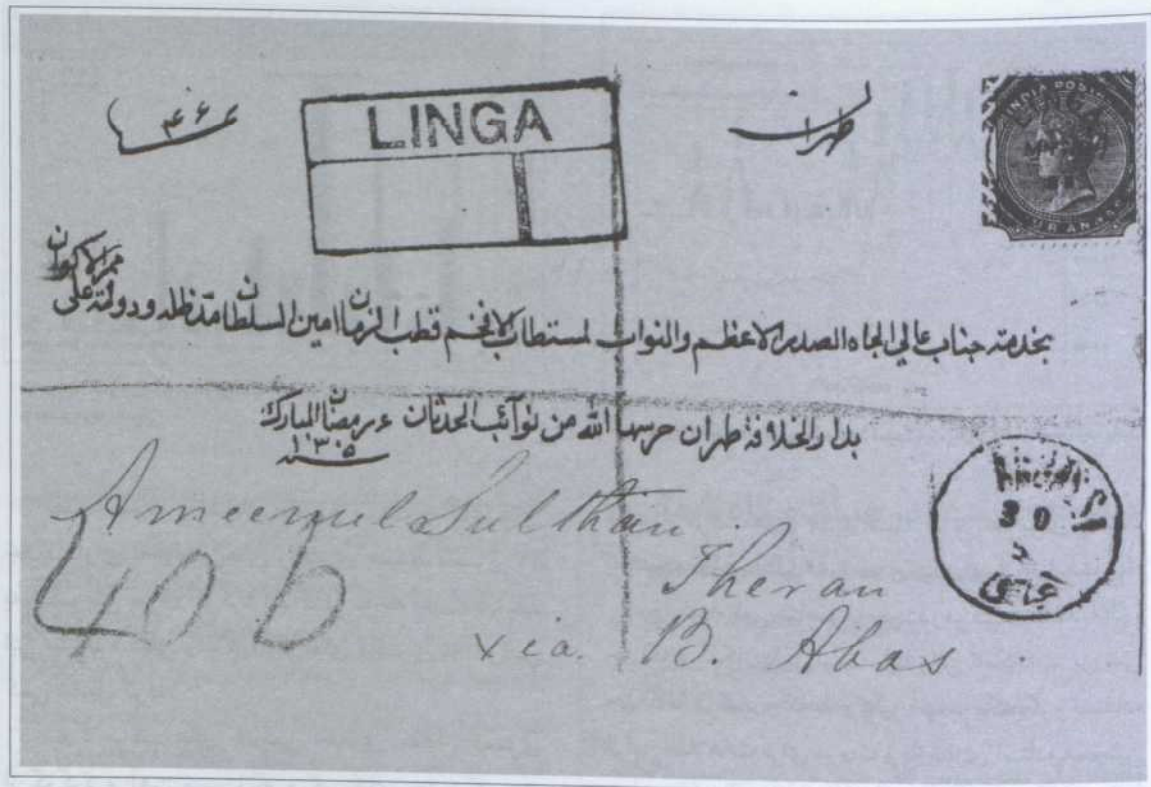 طهران
LINGA
INDIA POSTAGE
بخدمة جناب عالي الجاه الصدر الاعظم والنواب المستطاب الافخم قطب الزمان امين السلطان مد ظله ودولته على ممر الاكوان
بدار الخلافة طهران حرسها الله من نوآئب الحدثان رمضان المبارك
١٣٠٥
Ameenul Sulthan
Theran
via. B. Abas
30
5
عباسي